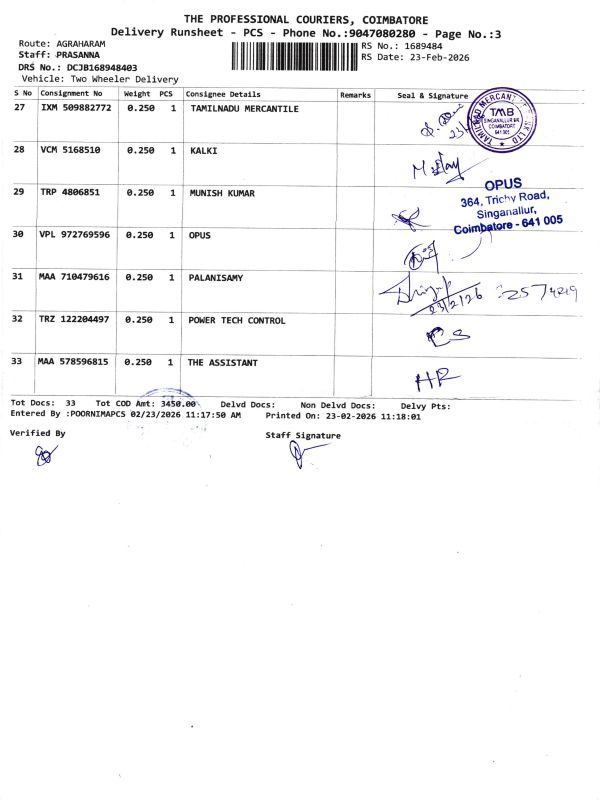 THE PROFESSIONAL COURIERS, COIMBATORE
Delivery Runsheet - PCS - Phone No.:9047080280 - Page No.:3
Route: AGRAHARAM
Staff: PRASANNA
DRS No.: DCJB168948403
Vehicle: Two Wheeler Delivery
RS No.: 1689484
RS Date: 23-Feb-2026
S No Consignment No Weight PCS Consignee Details Remarks Seal & Signature
27 IXM 509882772 0.250 1 TAMILNADU MERCANTILE
TMB
SINGANALLUR BR.
COIMBATORE
641 005
28 VCM 5168510 0.250 1 KALKI
29 TRP 4806851 0.250 1 MUNISH KUMAR
OPUS
364, Trichy Road,
Singanallur,
Coimbatore - 641 005
30 VPL 972769596 0.250 1 OPUS
31 MAA 710479616 0.250 1 PALANISAMY
23/2/26
32 TRZ 122204497 0.250 1 POWER TECH CONTROL
33 MAA 578596815 0.250 1 THE ASSISTANT
HR
Tot Docs: 33 Tot COD Amt: 3450.00 Delvd Docs: Non Delvd Docs: Delvy Pts:
Entered By :POORNIMAPCS 02/23/2026 11:17:50 AM Printed On: 23-02-2026 11:18:01
Verified By
Staff Signature